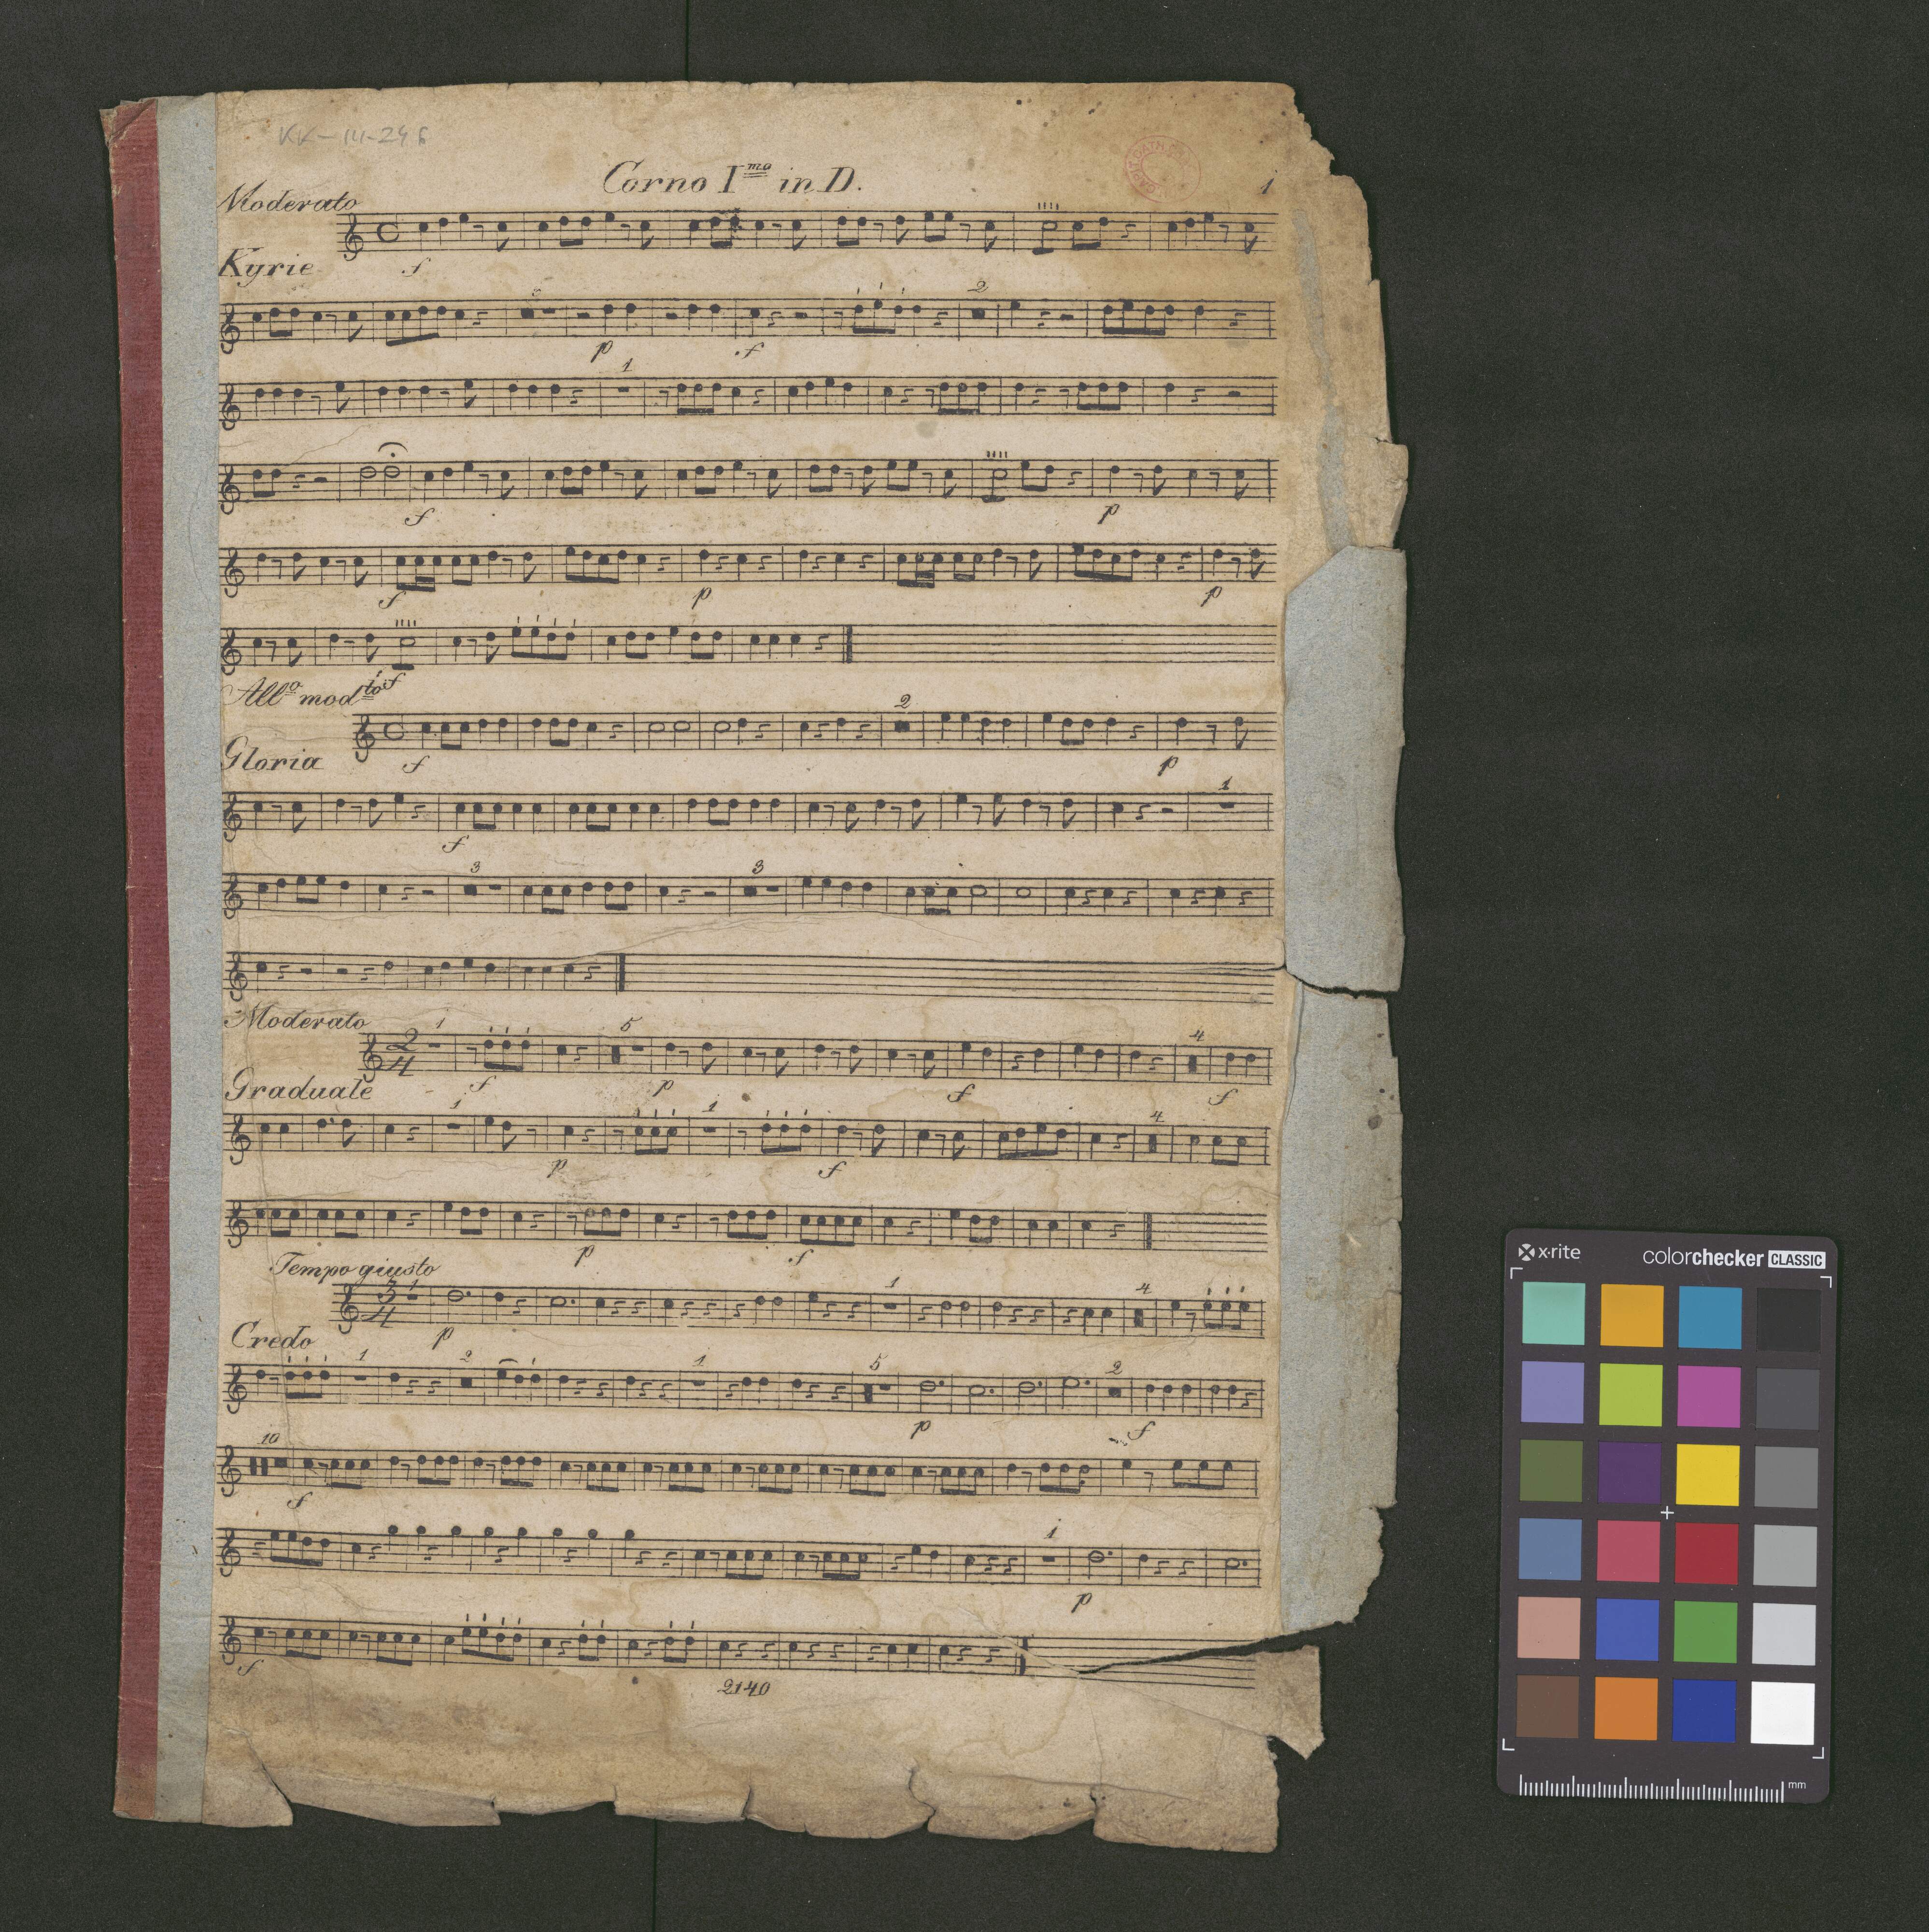 KK-III-246
Corno I^mo in D.
1
Moderato
Kyrie
f
5
2
p
f
1
f
p
f
p
p
f
All^o mod^to
2
Gloria
f
p
1
f
3
3
Moderato
1
5
4
Graduale
f
p
f
f
1
1
4
p
f
p
f
Tempo giusto
3/4
1
1
4
Credo
p
1
2
1
5
2
p
f
10
f
1
p
f
2140
x·rite
colorchecker CLASSIC
mm